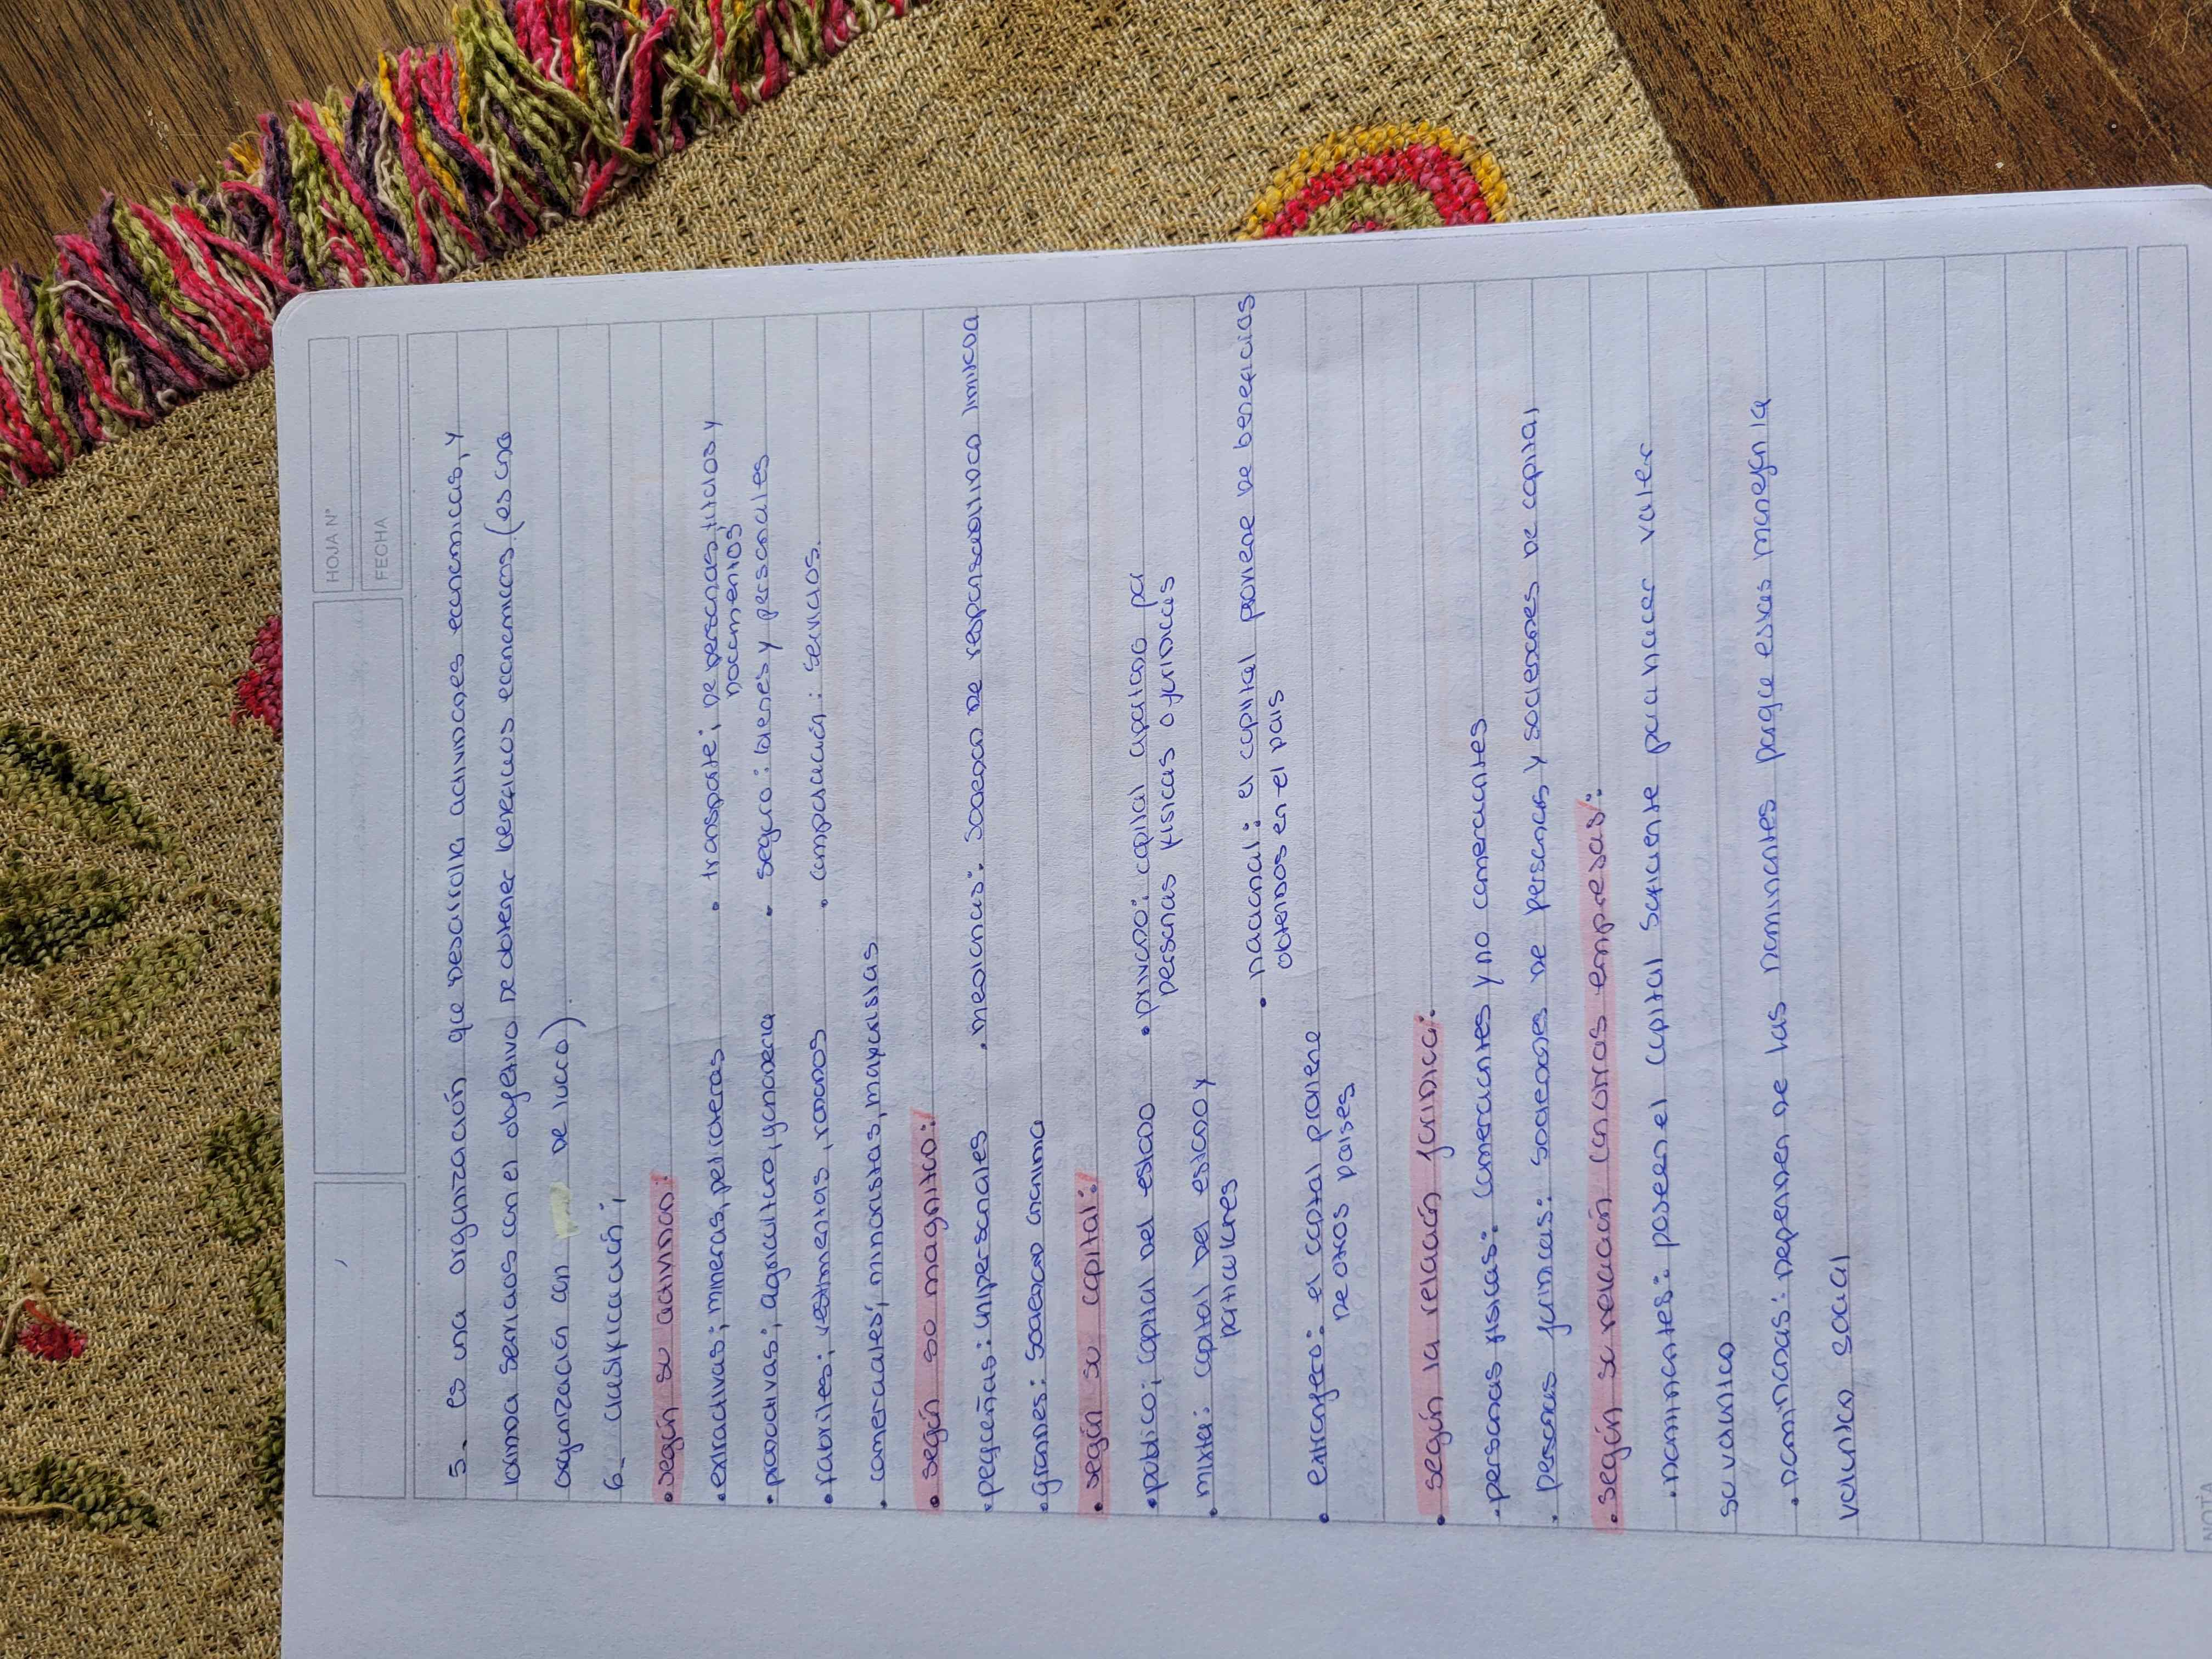 HOJA N°
FECHA
5_ es una organización que desarrolla actividades economicas, y
brinda servicios con el objetivo de obtener beneficios economicos (es una
organización con de lucro).
6_ clasificación;
• según su actividad:
• extractivas; mineras, petroleras • transporte; de personas, titulos y documentos
• productivas; agricultura, ganaderia • seguro: bienes y personales
• fabriles; vestimentas, rodados • computación: servicios.
• comerciales; minoristas, mayoristas
• según su magnitud:
• pequeñas: unipersonales • medianas: sociedad de responsabilidad limitada
• grandes: sociedad anonima
• según su capital:
• publico; capital del estado • privado: capital aportado por
personas fisicas o juridicas
• mixta: capital del estado y
particulares
• nacional: el capital proviene de beneficios
obtenidos en el pais
• extranjero: el capital proviene
de otros paises
• según la relación juridica:
• personas fisicas: comerciantes y no comerciantes
• personas juridicas: sociedades de personas y sociedades de capital
• según su relación con otras empresas:
• dominantes: poseen el capital suficiente para hacer valer
su voluntad
• dominadas: dependen de las dominantes porque estas manejan la
voluntad social
NOTA